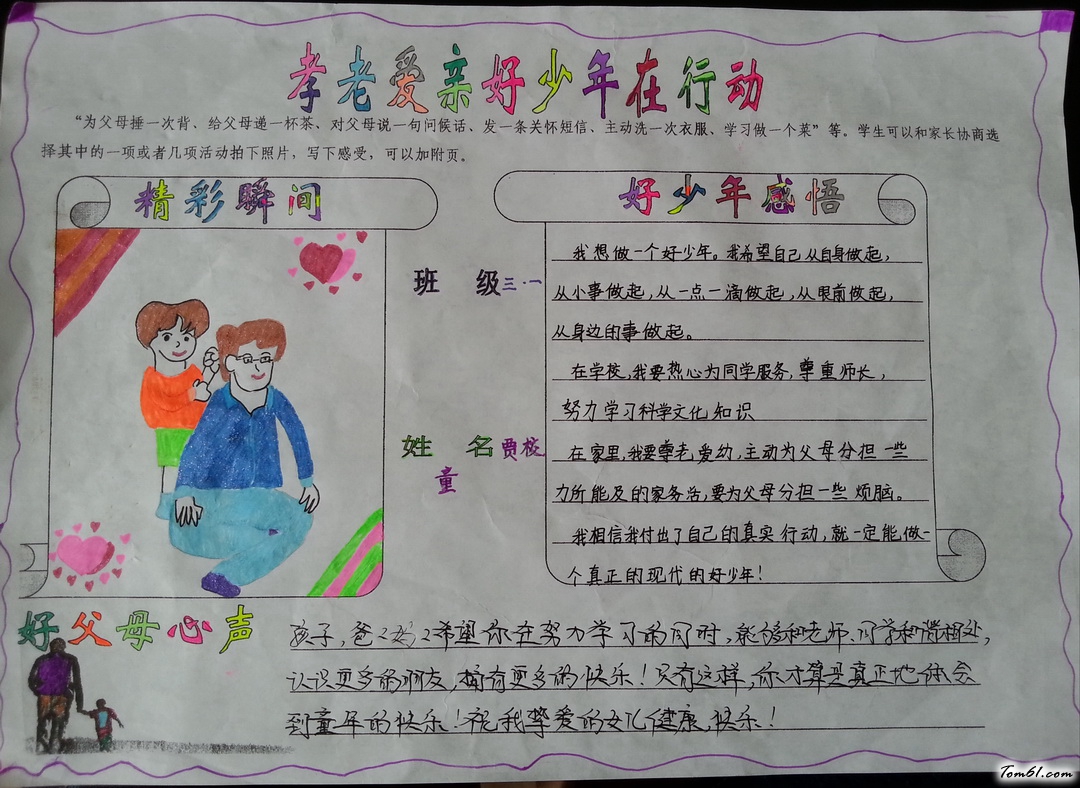 孝老爱亲好少年在行动
“为父母捶一次背、给父母递一杯茶、对父母说一句问候话、发一条关怀短信、主动洗一次衣服、学习做一个菜”等。学生可以和家长协商选
择其中的一项或者几项活动拍下照片，写下感受，可以加附页。
精彩瞬间
班 级三·一
姓 名贾校
童
好少年感悟
我想做一个好少年。我希望自己从自身做起，
从小事做起，从一点一滴做起，从眼前做起，
从身边的事做起。
在学校，我要热心为同学服务，尊重师长，
努力学习科学文化知识
在家里，我要尊老爱幼，主动为父母分担一些
力所能及的家务活，要为父母分担一些烦脑。
我相信我付出了自己的真实行动，就一定能做一
个真正的现代的好少年！
好父母心声
孩子，爸爸妈妈希望你在努力学习的同时，能够和老师、同学和谐相处，
认识更多的朋友，拥有更多的快乐！只有这样，你才算是真正地体会
到童年的快乐！祝我挚爱的女儿健康，快乐！
Tom61.com